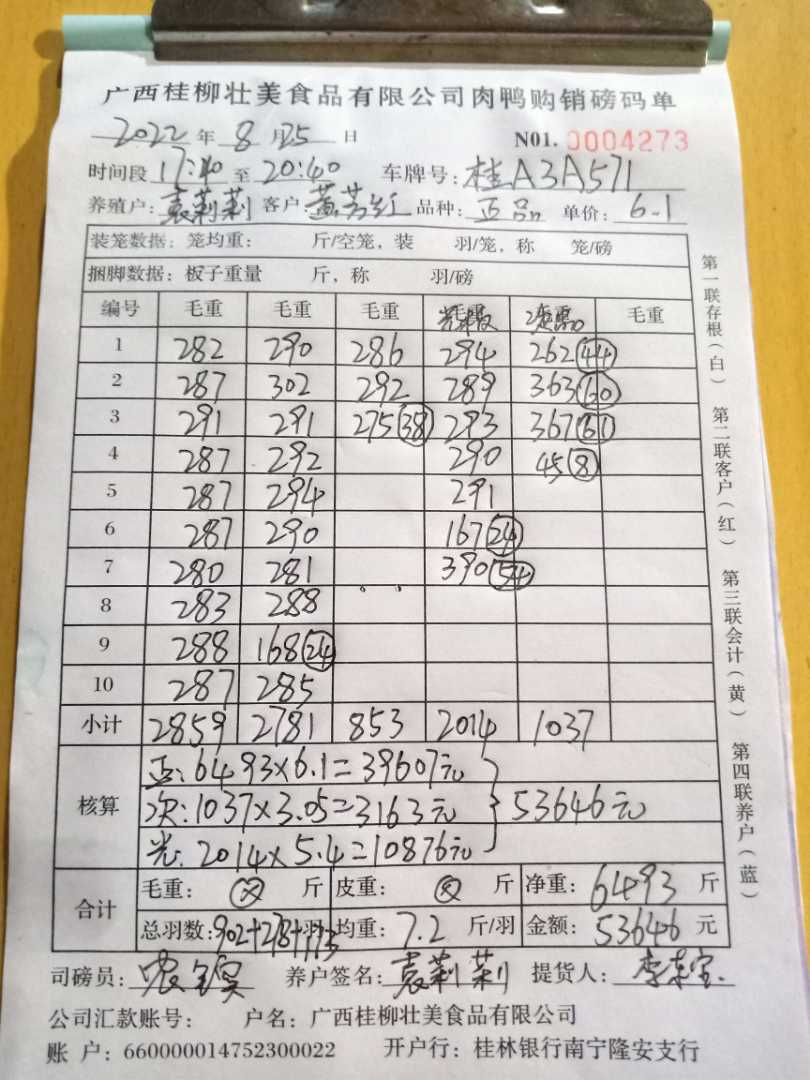 广西桂柳壮美食品有限公司肉鸭购销磅码单
2022年8月25日 N01. 0004273
时间段17:40至20:40 车牌号:桂A3A571
养殖户:袁莉莉 客户: 品种:正品 单价:6.1
装笼数据:笼均重: 斤/空笼,装 羽/笼,称 笼/磅
捆脚数据:板子重量 斤,称 羽/磅
编号 毛重 毛重 毛重 毛重
1 282 290 286 294 262(44)
2 287 302 292 289 363(60)
3 291 291 275(38) 293 367(61)
4 287 292 290 45(8)
5 287 294 291
6 287 290 167(24)
7 280 281 390(54)
8 283 288
9 288 168(24)
10 287 285
小计 2859 2781 853 2014 1037
核算
正:6493×6.1=39607元
次:1037×3.05=3163元 }53646元
光:2014×5.4=10876元
合计
毛重: 斤 皮重: 斤 净重:6493斤
总羽数:902+278+173羽 均重:7.2斤/羽 金额:53646元
司磅员: 养户签名:袁莉莉 提货人:
公司汇款账号: 户名:广西桂柳壮美食品有限公司
账 户:660000014752300022 开户行:桂林银行南宁隆安支行
第一联存根(白) 第二联客户(红) 第三联会计(黄) 第四联养户(蓝)